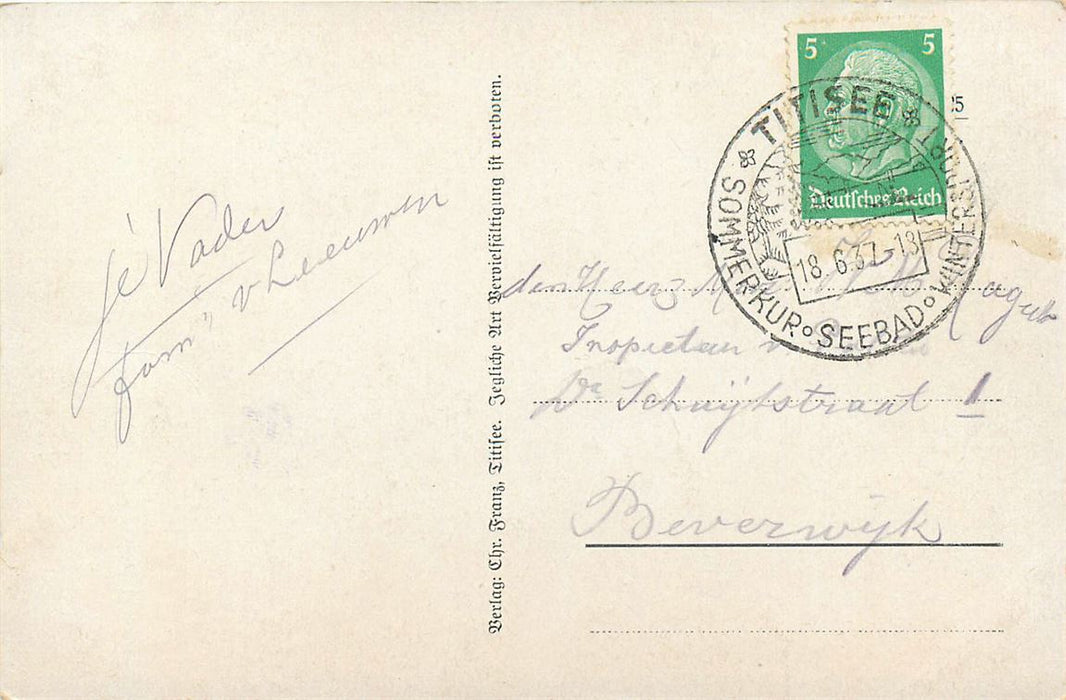 Je Vader
fam v Leeuwen
Verlag: Chr. Franz, Titisee. Jegliche Art Vervielfältigung ist verboten.
5 5
Deutsches Reich
TITISEE
WINTERSPORT
SOMMERKUR ∘ SEEBAD ∘
18.6.37.-18
den Heer
Inspecteur
Schuijtstraat 1
Beverwijk